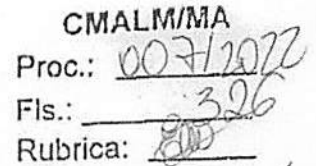 CMALM/MA
Proc.: 007/2022
Fls.: 326
Rubrica: